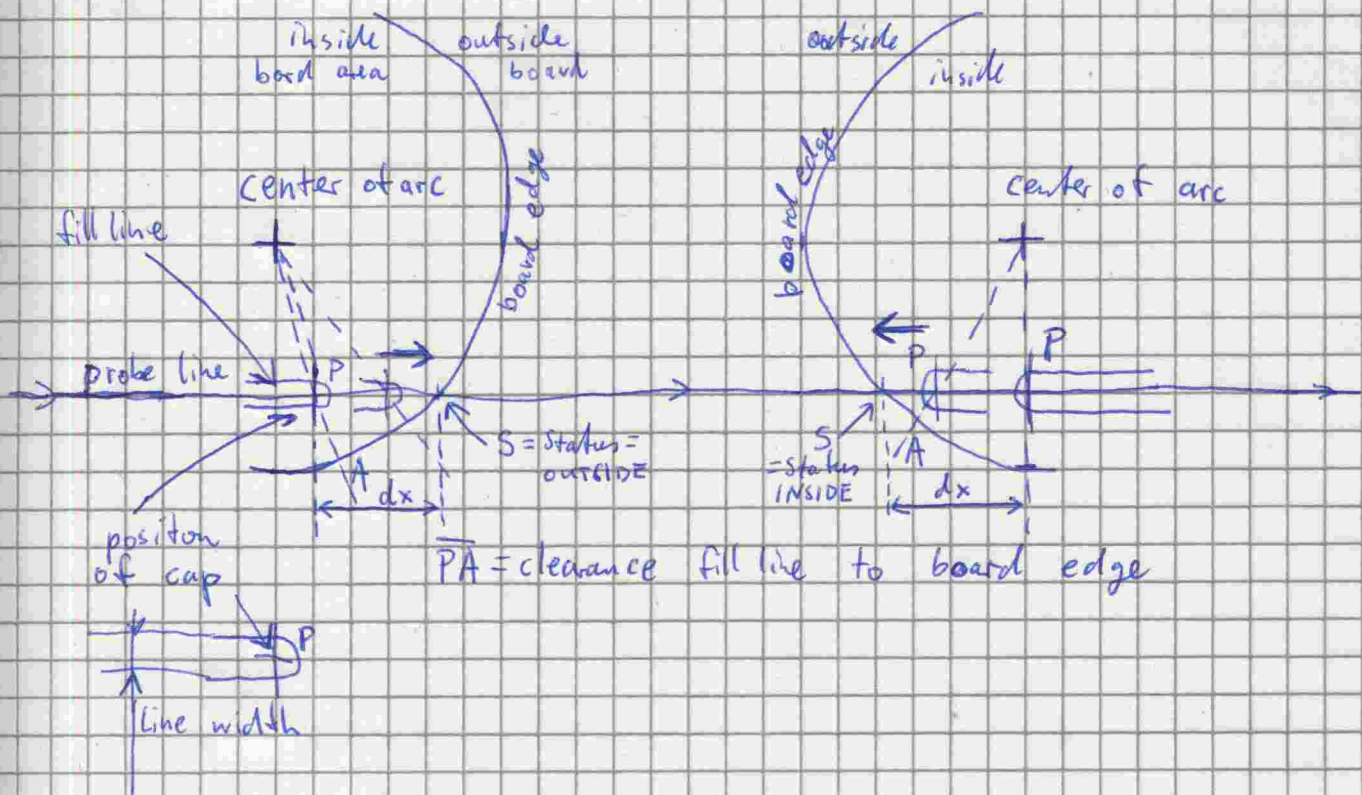 inside
bord area
outside
board
outside
inside
center of arc
center of arc
fill line
board edge
board edge
probe line
P
P
P
S = Status =
OUTSIDE
S
= Status
INSIDE
A
A
dx
dx
positon
of cap
PA = clearance fill line to board edge
P
line width